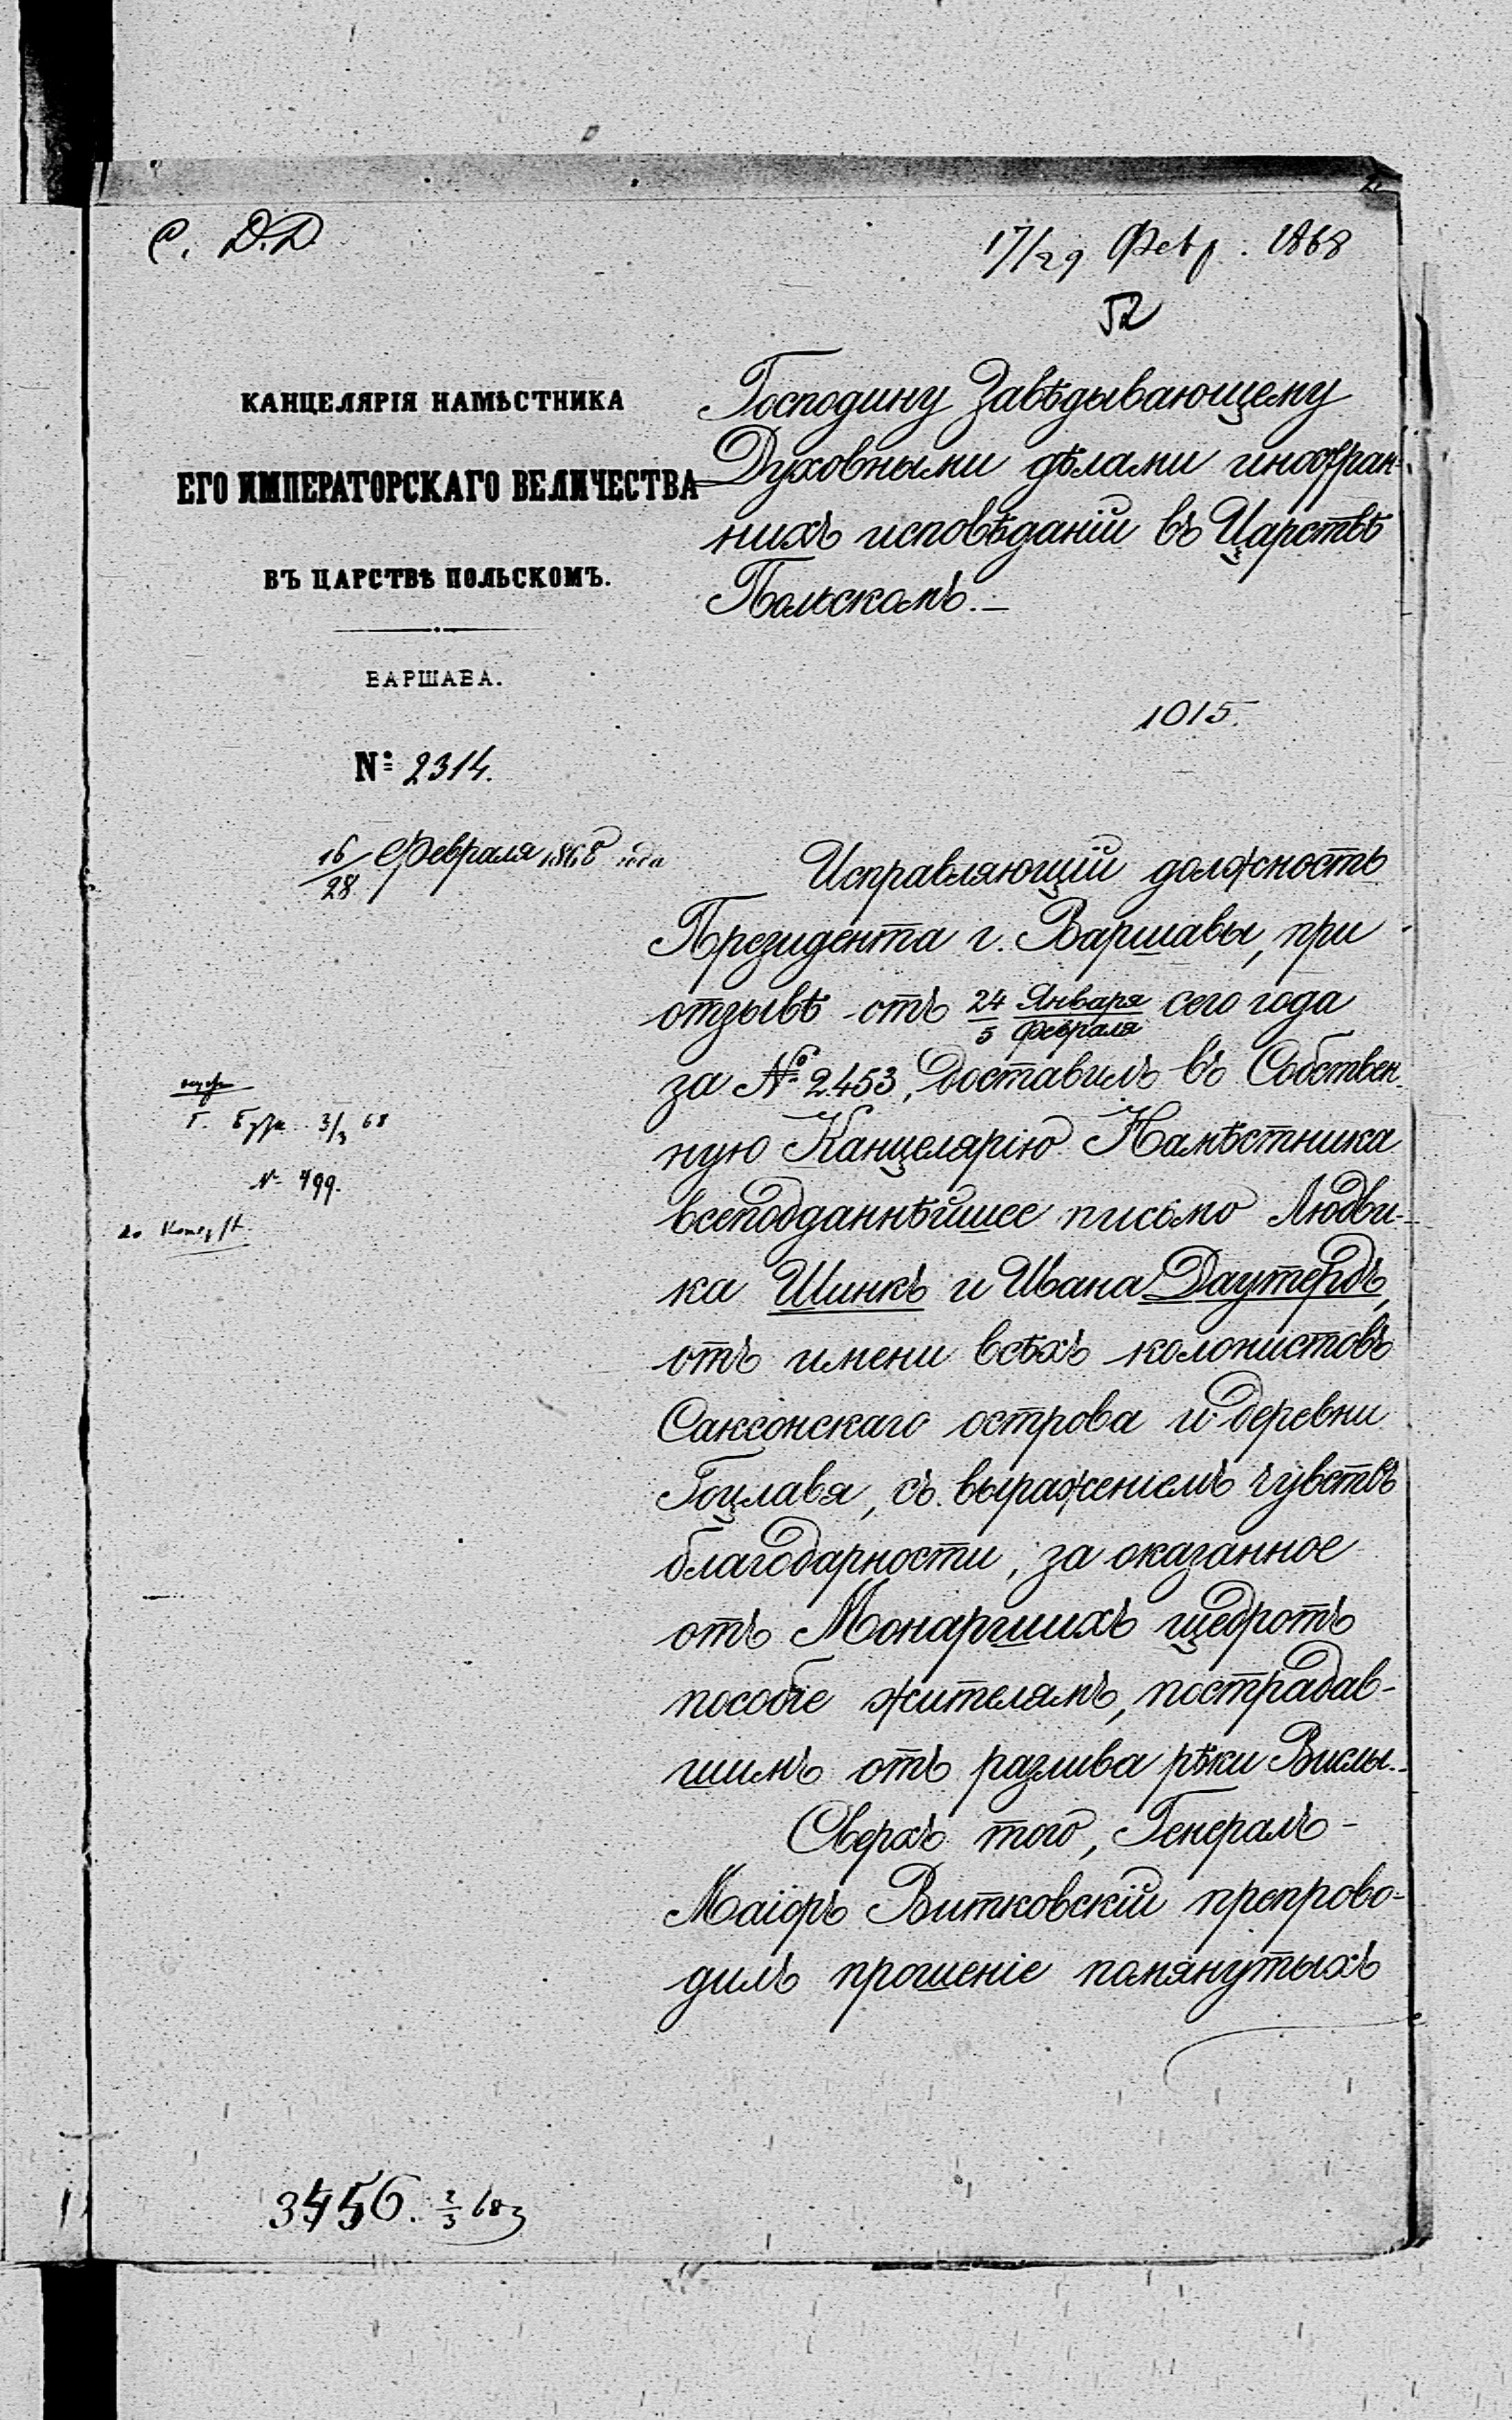 С. Д.Д.
17/29 Февр. 1868
52
КАНЦЕЛЯРІЯ НАМѢСТНИКА
ЕГО ИМПЕРАТОРСКАГО ВЕЛИЧЕСТВА
ВЪ ЦАРСТВѢ ПОЛЬСКОМЪ.
ВАРШАВА.
№ 2314.
16/28 Февраля 1868 года
Господину Завѣдывающему
Духовными дѣлами иностран-
нихъ исповѣданій въ Царствѣ
Польскомъ.—
1015.
Исправляющій должность
Президента г. Варшавы, при
отзывѣ отъ 24 Января / 5 Февраля сего года
за № 2453, доставилъ въ Собствен-
ную Канцелярію Намѣстника
всеподданнѣйшее письмо Людви-
ка Шинкъ и Ивана Даутердъ,
отъ имени всѣхъ колонистовъ
Саксонскаго острова и деревни
Гоцлавя, съ выраженіемъ чувствъ
благодарности, за оказанное
отъ Монаршихъ щедротъ
пособіе жителямъ, пострадав-
шимъ отъ разлива рѣки Вислы.
Сверхъ того, Генералъ-
Маіоръ Витковскій препрово-
дилъ прошеніе помянутыхъ
3/3 68
№ 499.
3456. 2/3 68